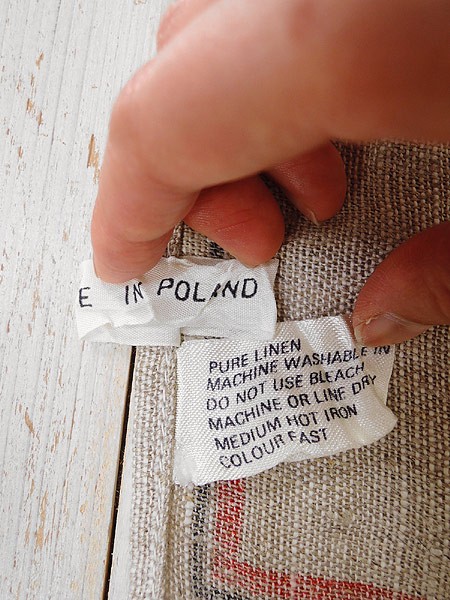 E IN POLAND
PURE LINEN
MACHINE WASHABLE IN
DO NOT USE BLEACH
MACHINE OR LINE DRY
MEDIUM HOT IRON
COLOUR FAST